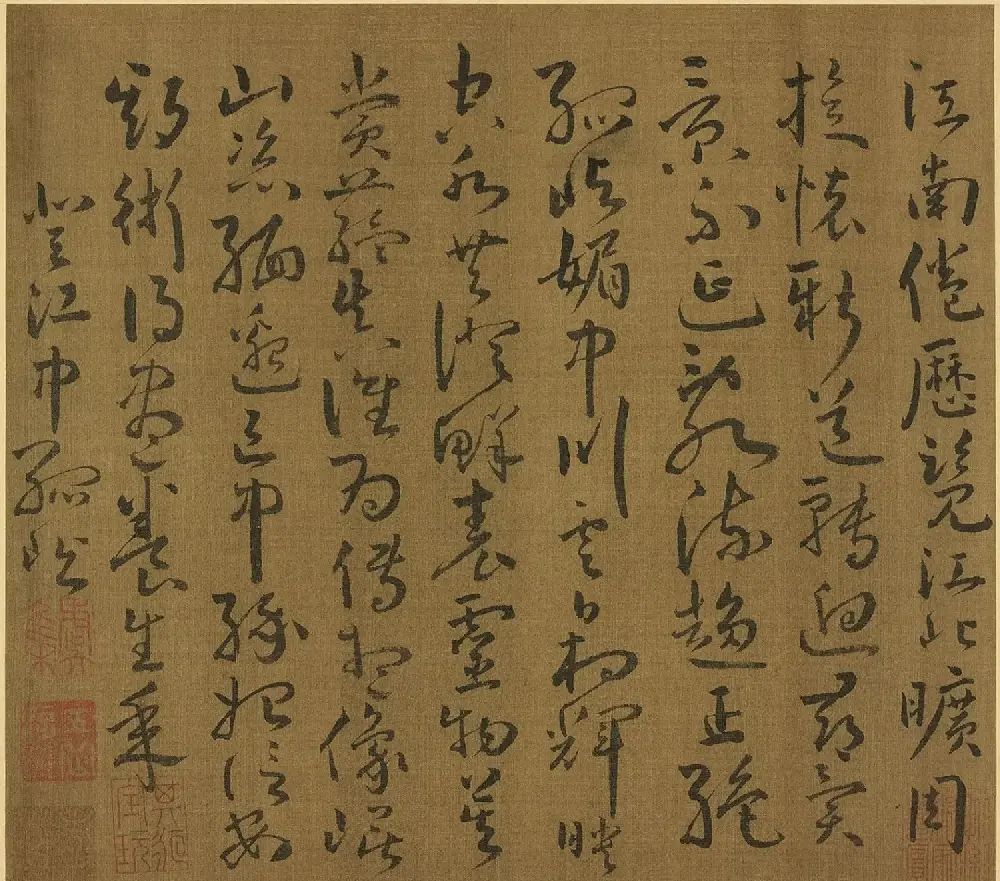 江南倦歷覽江北曠周
旋懷新道轉迥尋異
景不延亂流趨正絕
孤嶼媚中川雲日相輝映
空水共澄鮮表靈物莫
賞蘊真誰為傳想像崐
山姿緬邈區中緣始信安
期術得盡養生年
登江中孤嶼